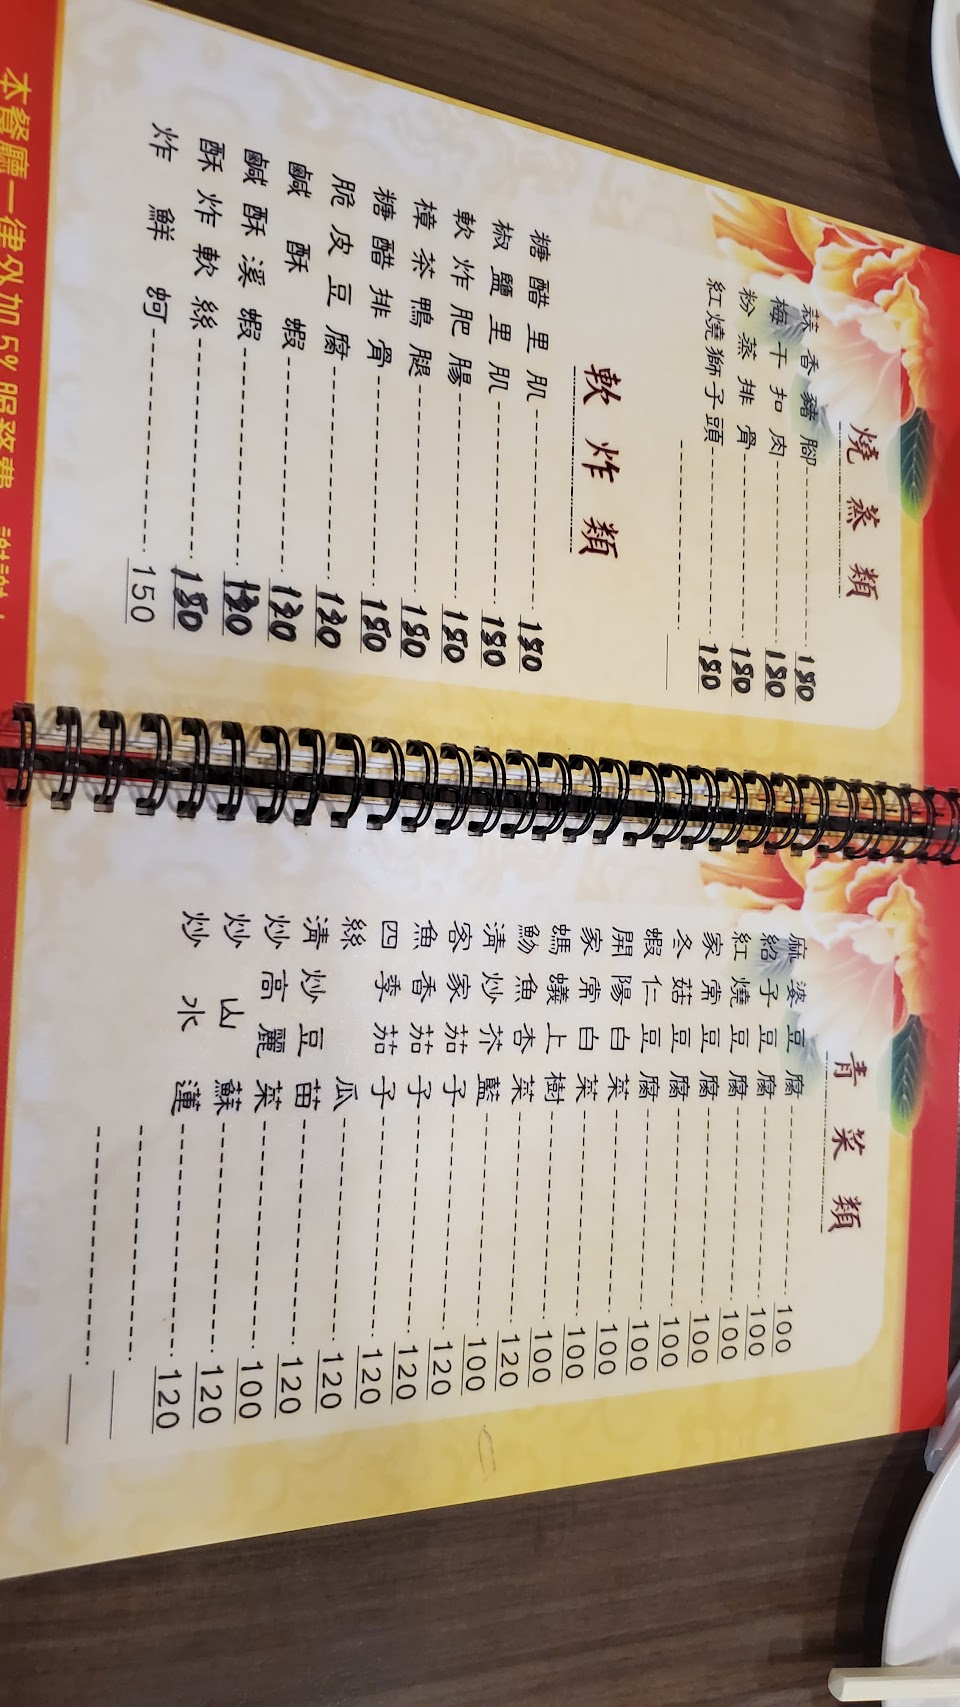 燒蒸類
蒜香豬腳 180
梅干扣肉 180
粉蒸排骨 180
紅燒獅子頭 180
軟炸類
糖醋里肌 180
椒鹽里肌 180
軟炸肥腸 180
樟茶鴨腿 180
糖醋排骨 180
脆皮豆腐
鹹酥蝦
鹹酥溪蝦
酥炸軟絲 180
炸鮮蚵 150
本餐廳一律外加5%服務費 謝謝
青菜類
麻婆豆腐 100
絡子豆腐 100
紅燒豆腐 100
家常豆腐 100
冬菇豆腐 100
蝦仁豆腐 100
開陽白菜 100
家常白菜 100
螞蟻上樹 100
魩魚杏菜 120
清炒芥藍 100
客家茄子 120
魚香茄子 120
四季茄子 120
絲瓜 120
清炒豆苗 120
炒高麗菜 100
炒山蘇 120
炒水蓮 120